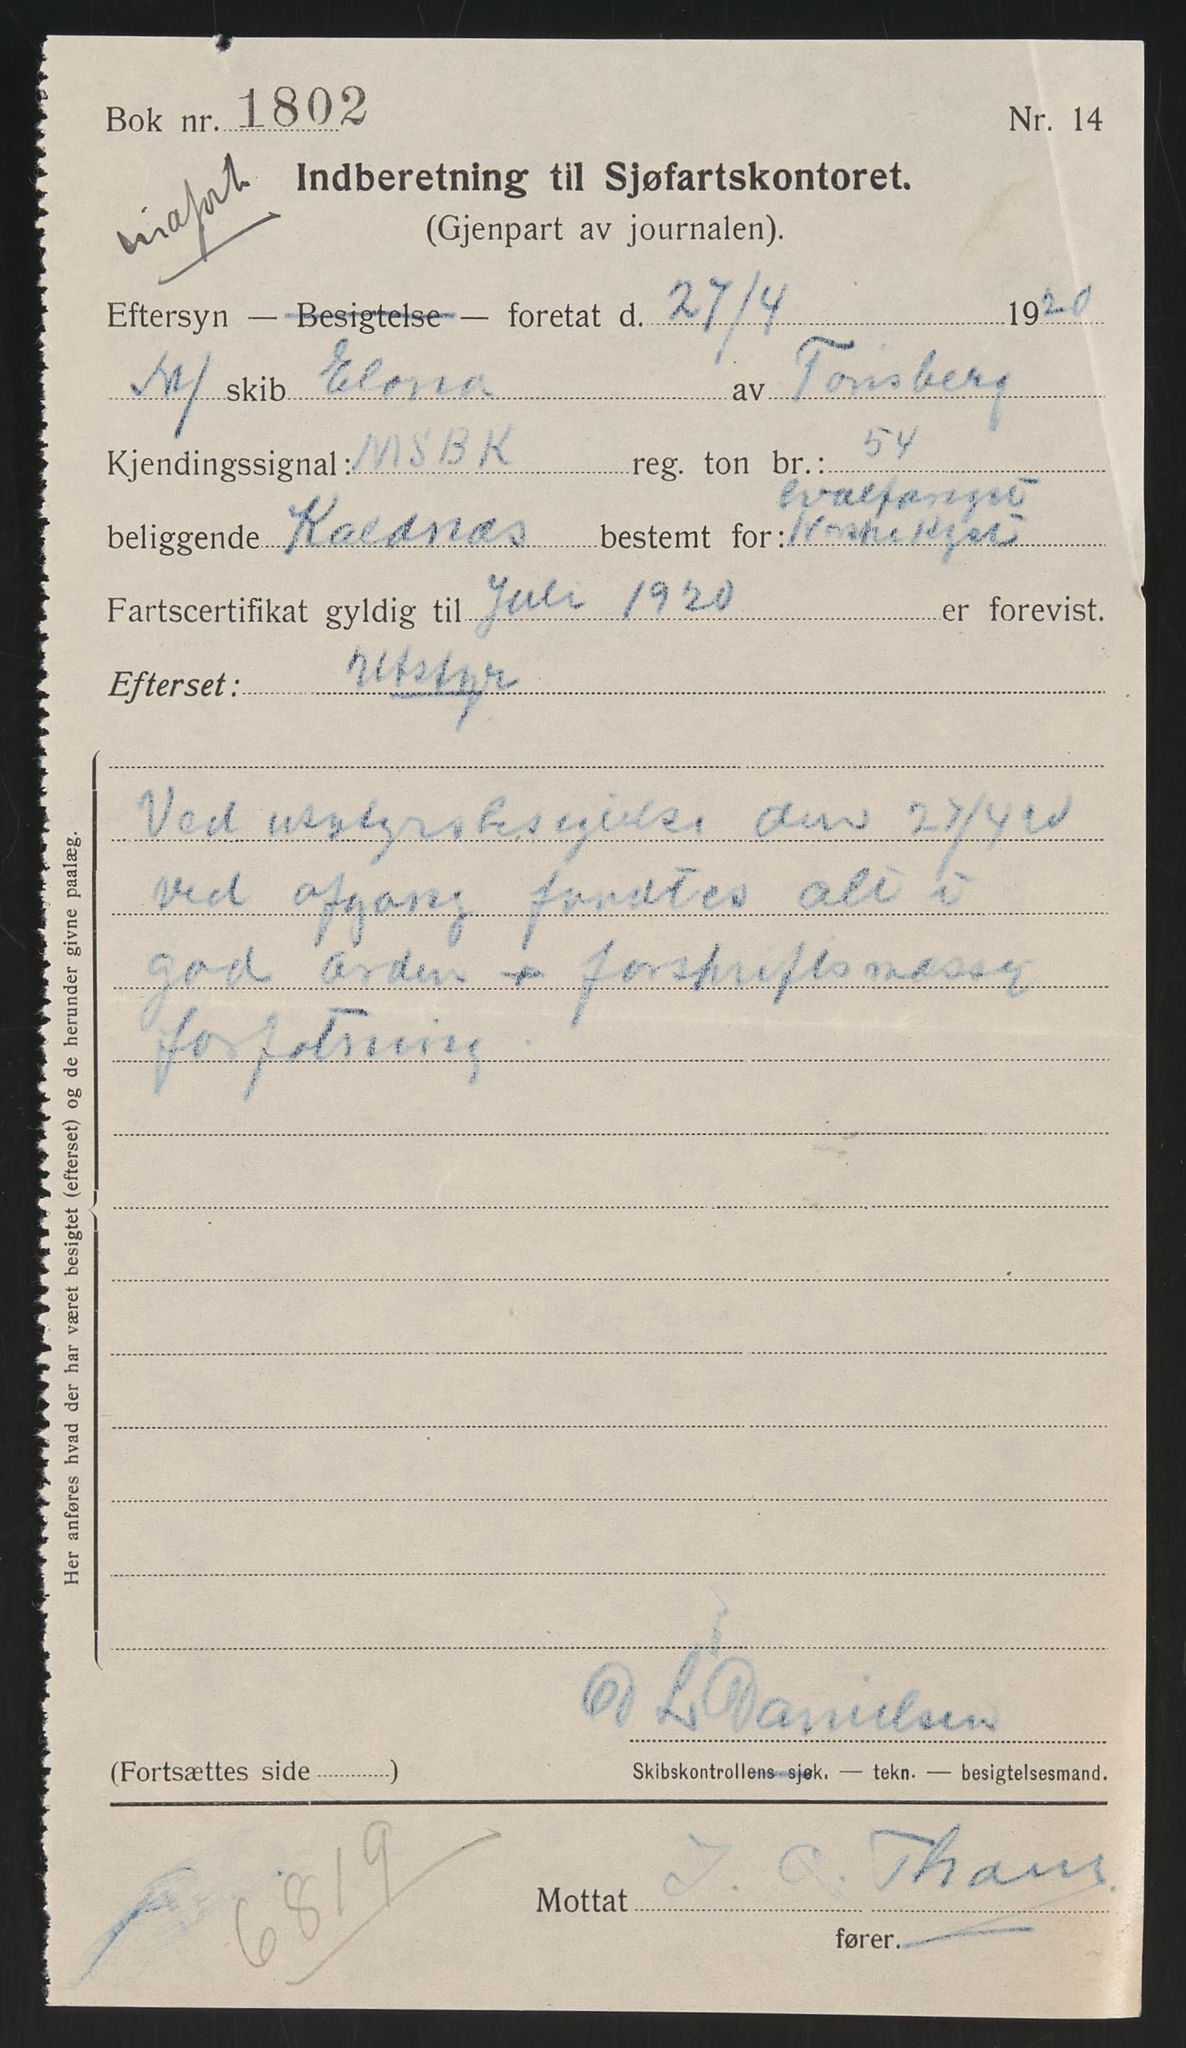 Bok nr. 1802 Nr. 14
Indberetning til Sjøfartskontoret.
(Gjenpart av journalen).
Eftersyn — Besigtelse — foretat d. 27/4 1920
skib Elona av Tønsberg
Kjendingssignal: MSBK reg. ton br.: 54
hvalfangst
beliggende Kaldnæs bestemt for: Norske Kyst
Fartscertifikat gyldig til Juli 1920 er forevist.
Efterset: Utstyr
Her anføres hvad der har været besigtet (efterset) og de herunder givne paalæg.
Ved utstyrsbesigtelse den 27/4 20
ved afgang fandtes alt i
god orden + forskriftsmæssig
forfatning.
L. Danielsen
(Fortsættes side )
Skibskontrollens sjøk. — tekn. — besigtelsesmand.
6819
Mottat J. A. Thaus
fører.